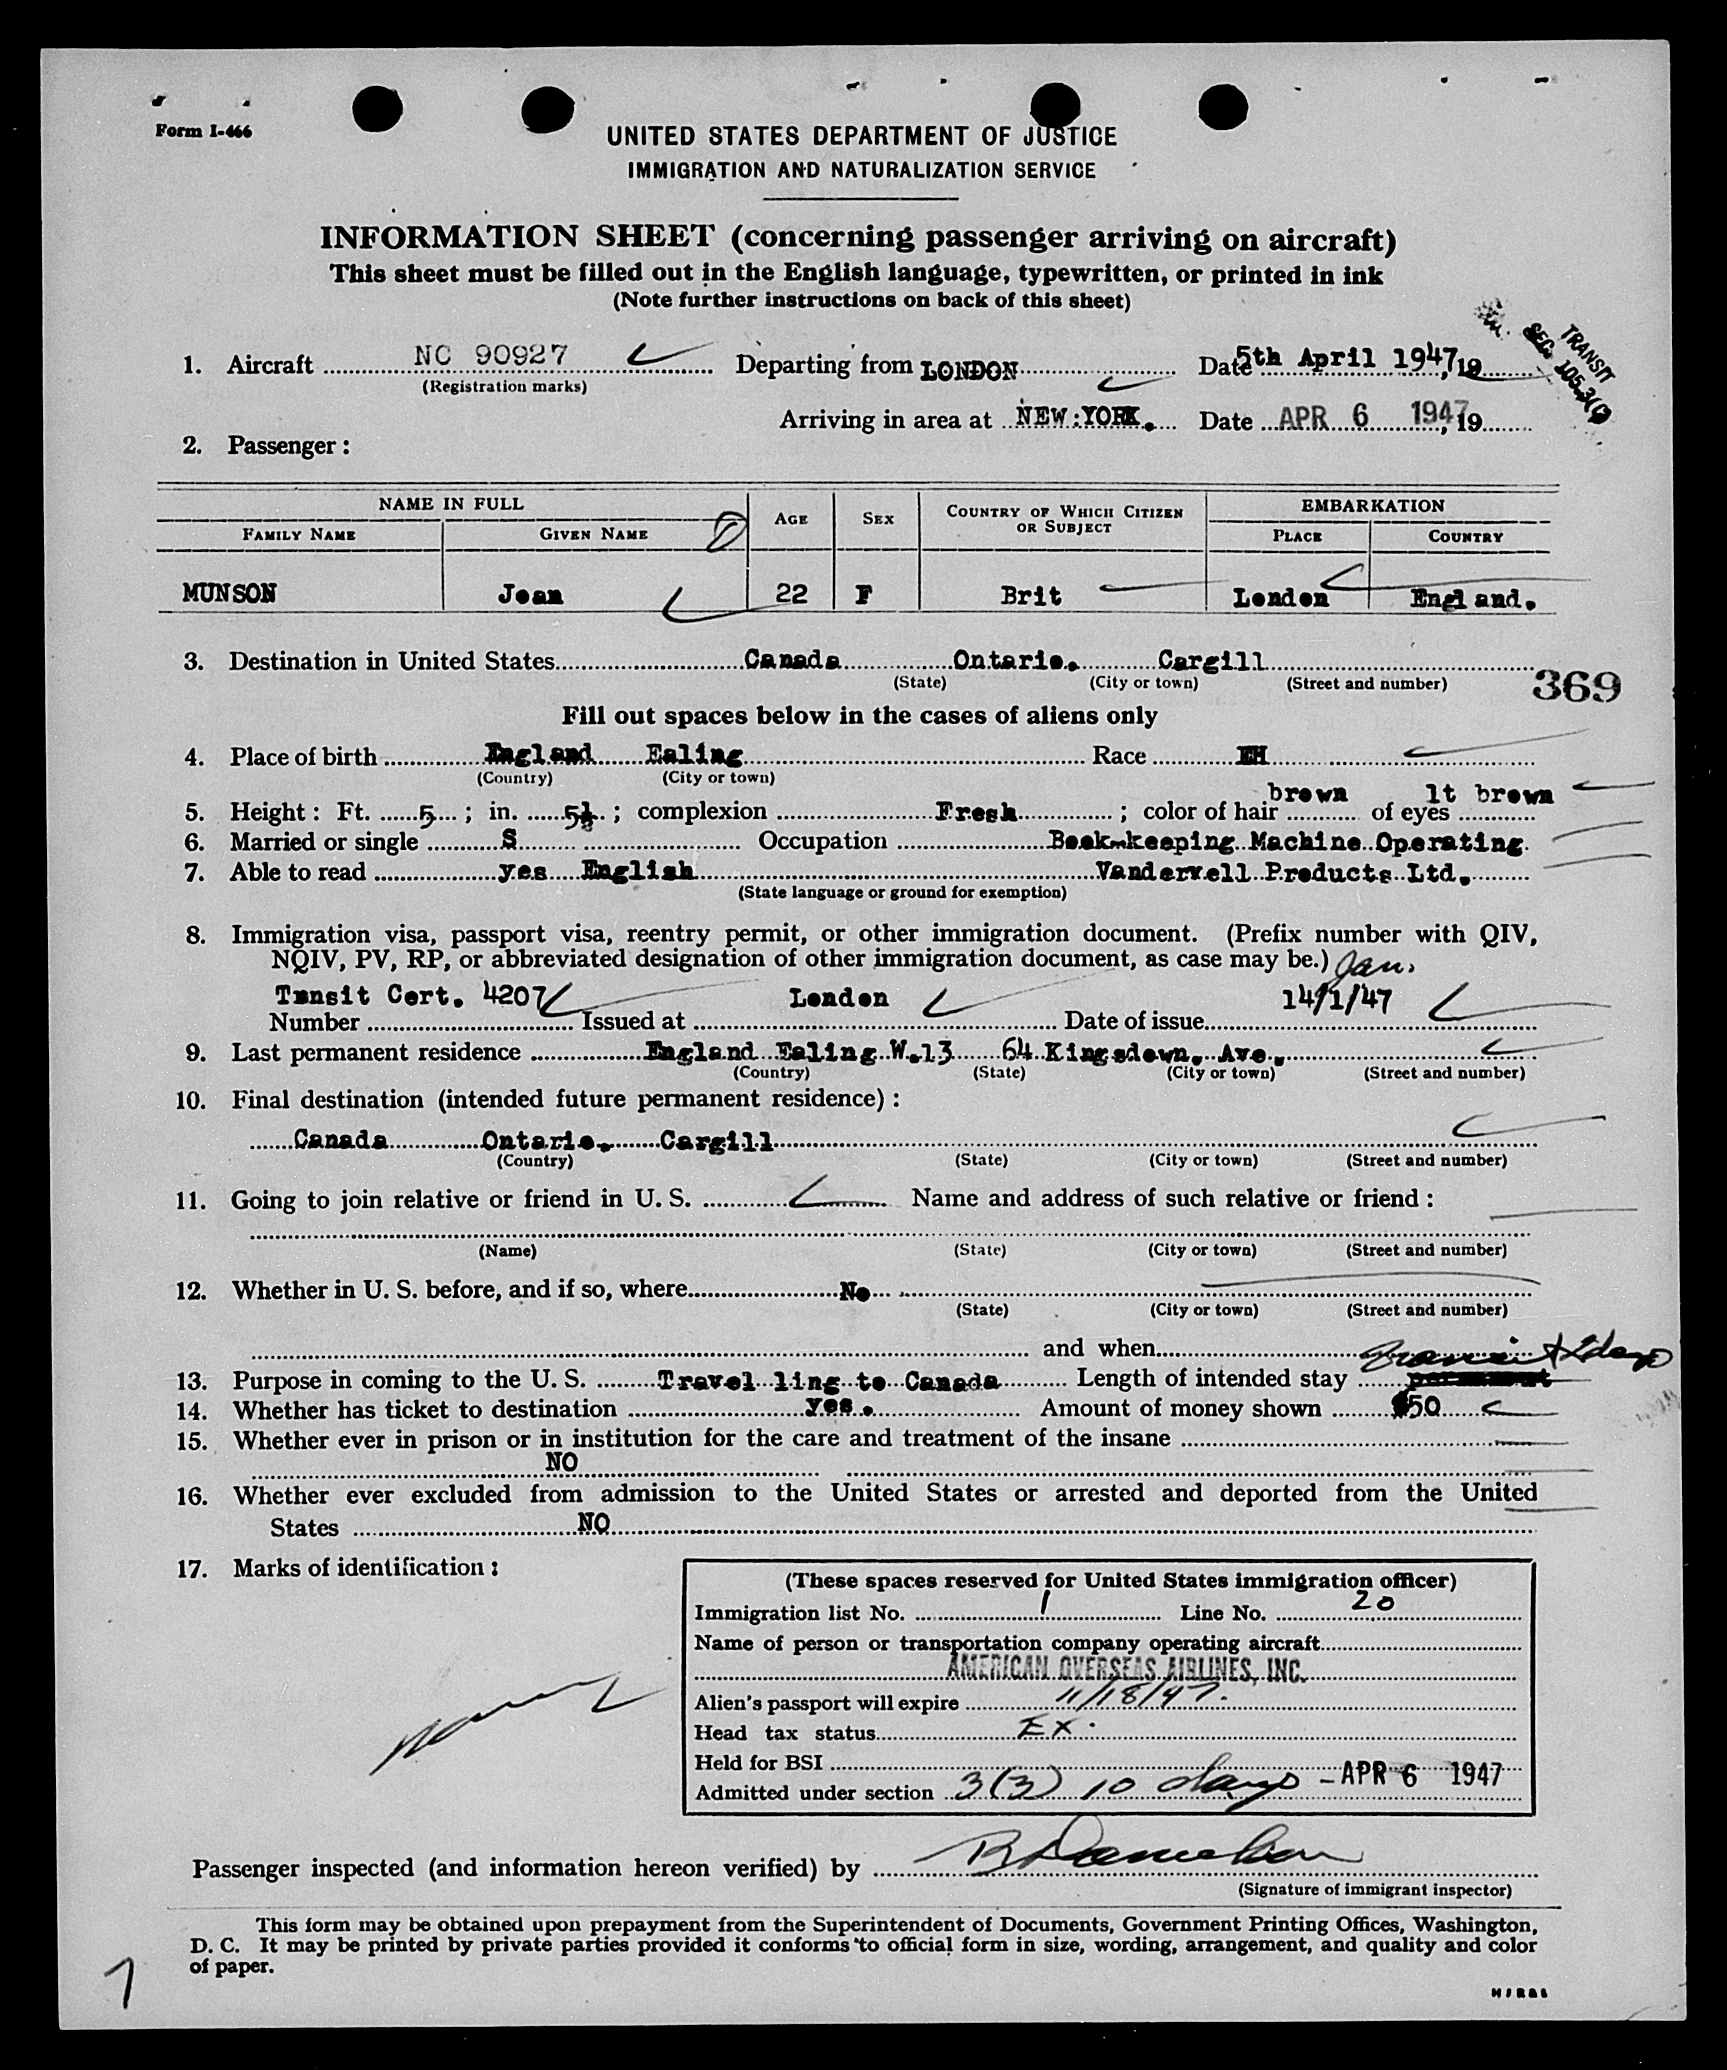 Form I-466
UNITED STATES DEPARTMENT OF JUSTICE
IMMIGRATION AND NATURALIZATION SERVICE
INFORMATION SHEET (concerning passenger arriving on aircraft)
This sheet must be filled out in the English language, typewritten, or printed in ink
(Note further instructions on back of this sheet)
TRANSIT
SEC. 105.3(
1. Aircraft NC 90927 Departing from LONDON Date 5th April 1947, 19
(Registration marks)
Arriving in area at NEW:YORK. Date APR 6 1947, 19
2. Passenger:
NAME IN FULL AGE SEX COUNTRY OF WHICH CITIZEN OR SUBJECT EMBARKATION
FAMILY NAME GIVEN NAME PLACE COUNTRY
MUNSON Jean 22 F Brit London England.
3. Destination in United States Canada Ontario. Cargill
(State) (City or town) (Street and number)
369
Fill out spaces below in the cases of aliens only
4. Place of birth England Ealing Race EH
(Country) (City or town)
brown lt brown
5. Height: Ft. 5; in. 5½; complexion Fresh; color of hair of eyes
6. Married or single S Occupation Book-keeping Machine Operating.
7. Able to read yes English Vandervell Products Ltd.
(State language or ground for exemption)
8. Immigration visa, passport visa, reentry permit, or other immigration document. (Prefix number with QIV,
NQIV, PV, RP, or abbreviated designation of other immigration document, as case may be.) Jan.
Tansit Cert. 4207 London 14/1/47
Number Issued at Date of issue
9. Last permanent residence England Ealing W.13 64 Kingsdown. Ave.
(Country) (State) (City or town) (Street and number)
10. Final destination (intended future permanent residence):
Canada Ontario. Cargill
(Country) (State) (City or town) (Street and number)
11. Going to join relative or friend in U. S. Name and address of such relative or friend:
(Name) (State) (City or town) (Street and number)
12. Whether in U. S. before, and if so, where No
(State) (City or town) (Street and number)
and when
Transit 2 days
13. Purpose in coming to the U. S. Travel ling to Canada Length of intended stay permanent
14. Whether has ticket to destination yes. Amount of money shown $50
15. Whether ever in prison or in institution for the care and treatment of the insane
NO
16. Whether ever excluded from admission to the United States or arrested and deported from the United
States NO
17. Marks of identification:
(These spaces reserved for United States immigration officer)
Immigration list No. 1 Line No. 20
Name of person or transportation company operating aircraft
AMERICAN OVERSEAS AIRLINES, INC.
Alien's passport will expire 11/18/47.
Head tax status Ex.
Held for BSI
Admitted under section 3(3) 10 days - APR 6 1947
Passenger inspected (and information hereon verified) by
(Signature of immigrant inspector)
This form may be obtained upon prepayment from the Superintendent of Documents, Government Printing Offices, Washington,
D. C. It may be printed by private parties provided it conforms to official form in size, wording, arrangement, and quality and color
of paper.
7